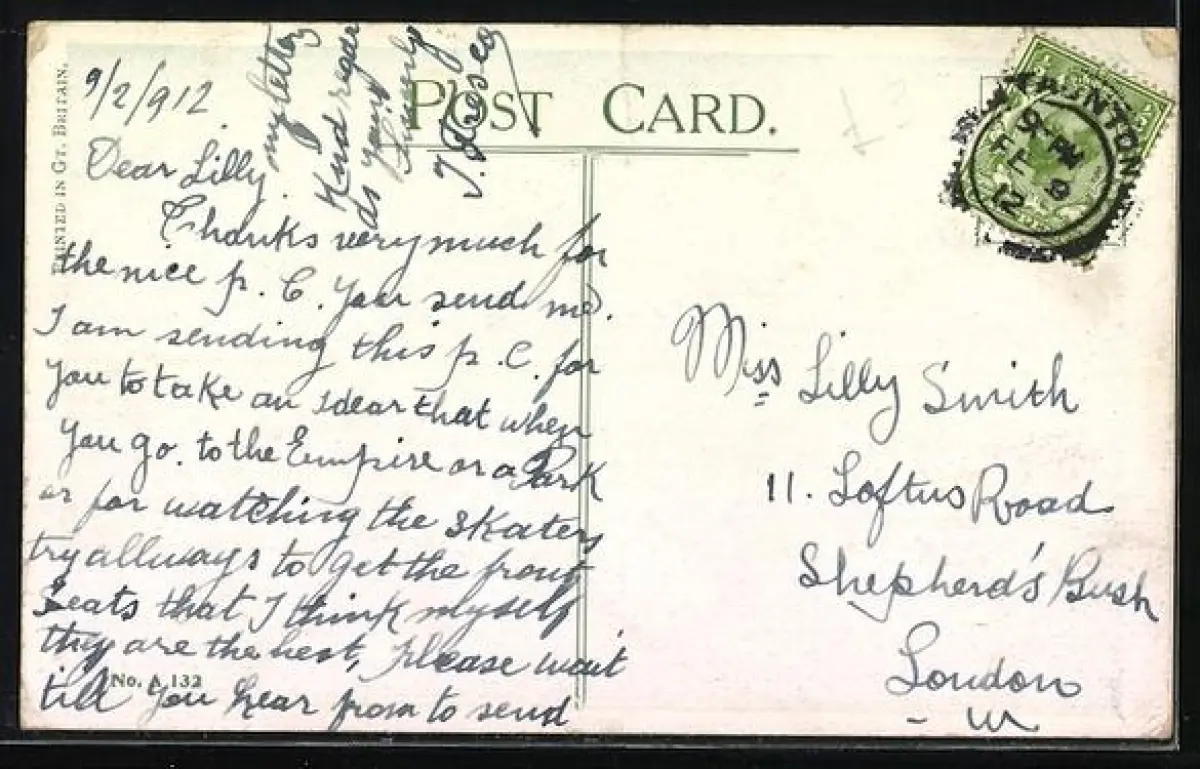 PRINTED IN GT. BRITAIN.
POST CARD.
9/2/912
Dear Lilly
Thanks very much for
the nice p. C. you send me.
I am sending this p. C. for
you to take an idear that when
you go. to the Empire or a Park
or for watching the skaters
try allways to get the front
Seats that I think myself
they are the best, please wait
till you hear from to send
my letter
Kind regar
as your
No. A 132
TAUNTON
9 PM
FE 9
12
Miss Lilly Smith
11. Loftus Road
Shepherd's Bush
London
- W